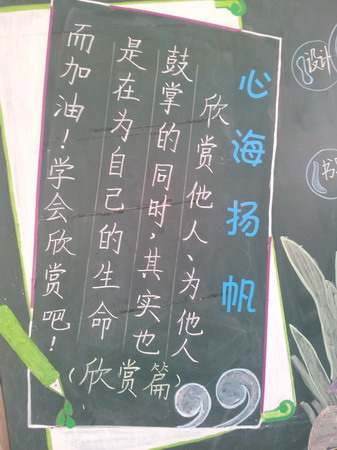 心海扬帆
欣赏他人、为他人
鼓掌的同时,其实也
是在为自己的生命
而加油!学会欣赏吧!
(欣赏篇)
设计
书